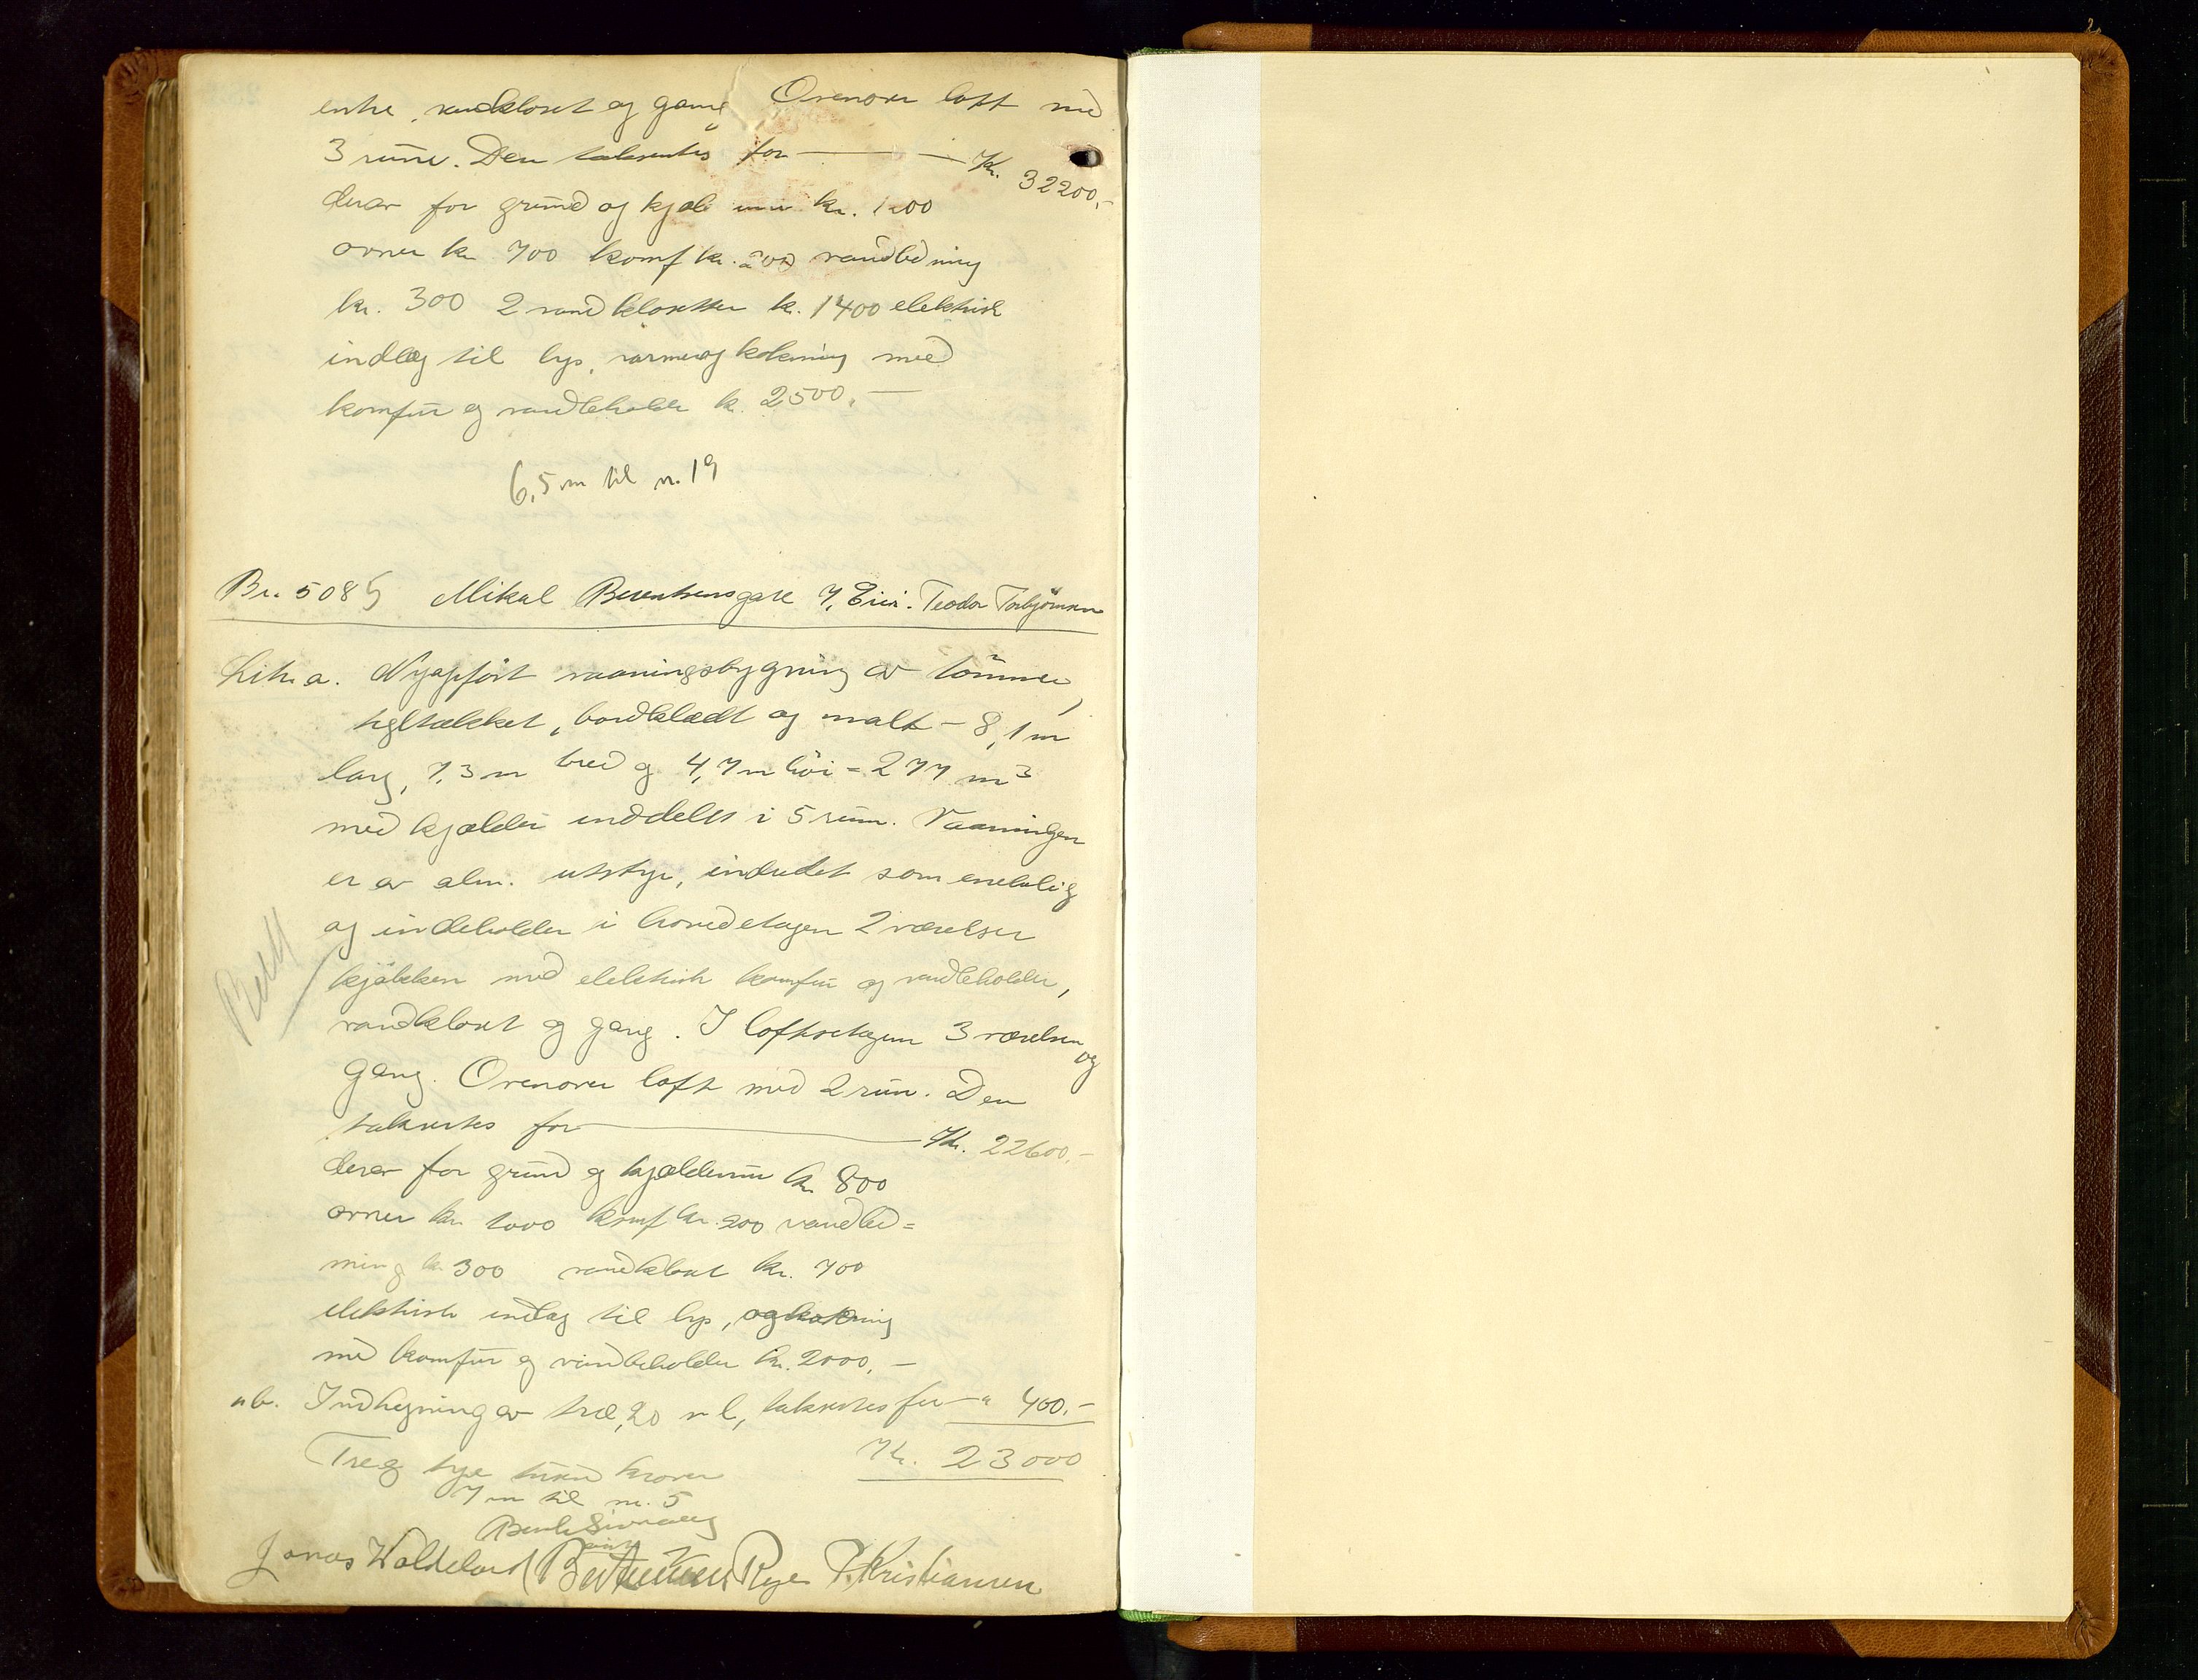 entre, vandkloset og gang Ovenover loft med
3 rum. Den takseres for — Kr. 32200,-
derav for grund og kjæl mur kr. 1200
ovner kr 700 komf kr. 200 vandledning
kr. 300 2 vandklosetter kr. 1400 elektrisk
indlæg til lys, varme og kokning med
komfur og vandbeholder kr. 2500,-
6,5 m til nr. 19
Br. 5085 Mikal Berentsensgate 7, Eier. Teodor Torbjörnsen
Litr. a. Nyopfört vaaningsbygning av tömmer,
tegltækket, bordklædt og malt - 8,1 m
lang, 7,3 m bred og 4,7 m höi = 277 m³
med kjælder inddelt i 5 rum. Vaaningen
er av alm. utstyr, indredet som enebolig
og indeholder i hovedetagen 2 værelser
kjökken med elektrisk komfur og vandbeholder,
vandkloset og gang. I loftsetagen 3 værelser og
gang. Ovenover loft med 2 rum. Den
takseres for — Kr. 22600,-
derav for grund og kjældermur kr 800
ovner kr 1000 komf kr. 200 vandled=
ning kr 300 vandkloset kr. 700
elektrisk indlæg til lys, og kokning
med komfur og vandbeholder kr. 2000,-
" b. Indhegning av træ, 20 m l, takseres for — " 400.-
Treogtyve tusind kroner Kr. 23000
7 m til nr. 5
Jonas Waldeland Rege P. Kristiansen